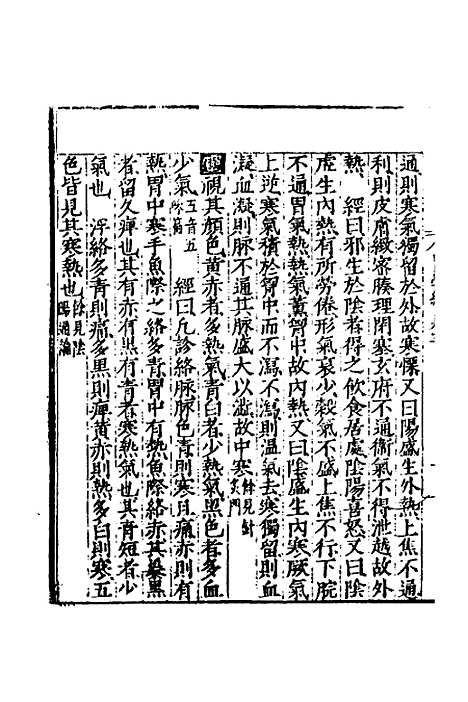 通則寒氣獨留於外故寒慄又曰陽盛生外熱上焦不通
利則皮膚緻密腠理閉塞玄府不通衛氣不得泄越故外
熱　經曰邪生於陰者得之飲食居處陰陽喜怒又曰陰
虛生內熱有所勞倦形氣衰少穀氣不盛上焦不行下脘
不通胃氣熱熱氣薰胷中故內熱又曰陰盛生內寒厥氣
上逆寒氣積於胷中而不瀉不瀉則溫氣去寒獨留則血
凝血凝則脉不通其脉盛大以濇故中寒餘見針
視其顏色黃赤者多熱氣青白者少熱氣黑色者多血
少氣五音五　經曰凡診絡脉脉色青則寒且痛赤則有
熱胃中寒手魚際之絡多青胃中有熱魚際絡赤其暴黑
者留久痺也其有赤有黑有青者寒熱氣也其青短者少
氣也　浮絡多青則痛多黑則痺黃赤則熱多白則寒五
色皆見其寒熱也餘見陰陽通論